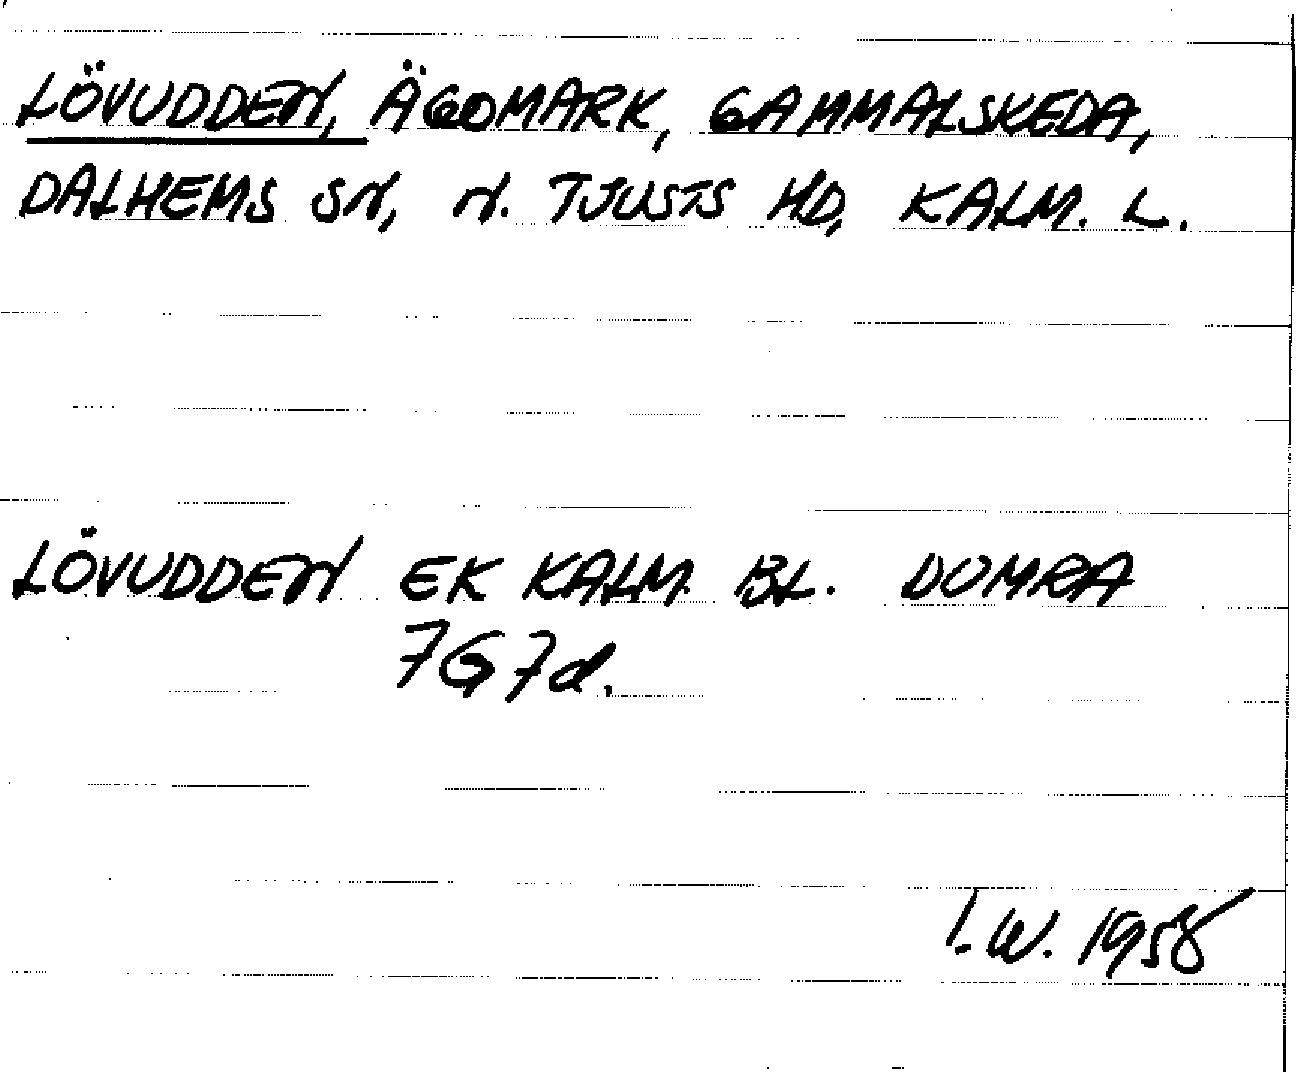 LÖVUDDEN, ÄGOMARK, GAMMALSKEDA,
DALHEMS SN, N. TJUSTS HD, KALM. L.
LÖVUDDEN EK KALM. BL. DOMRA
7G7d.
I.W. 1958